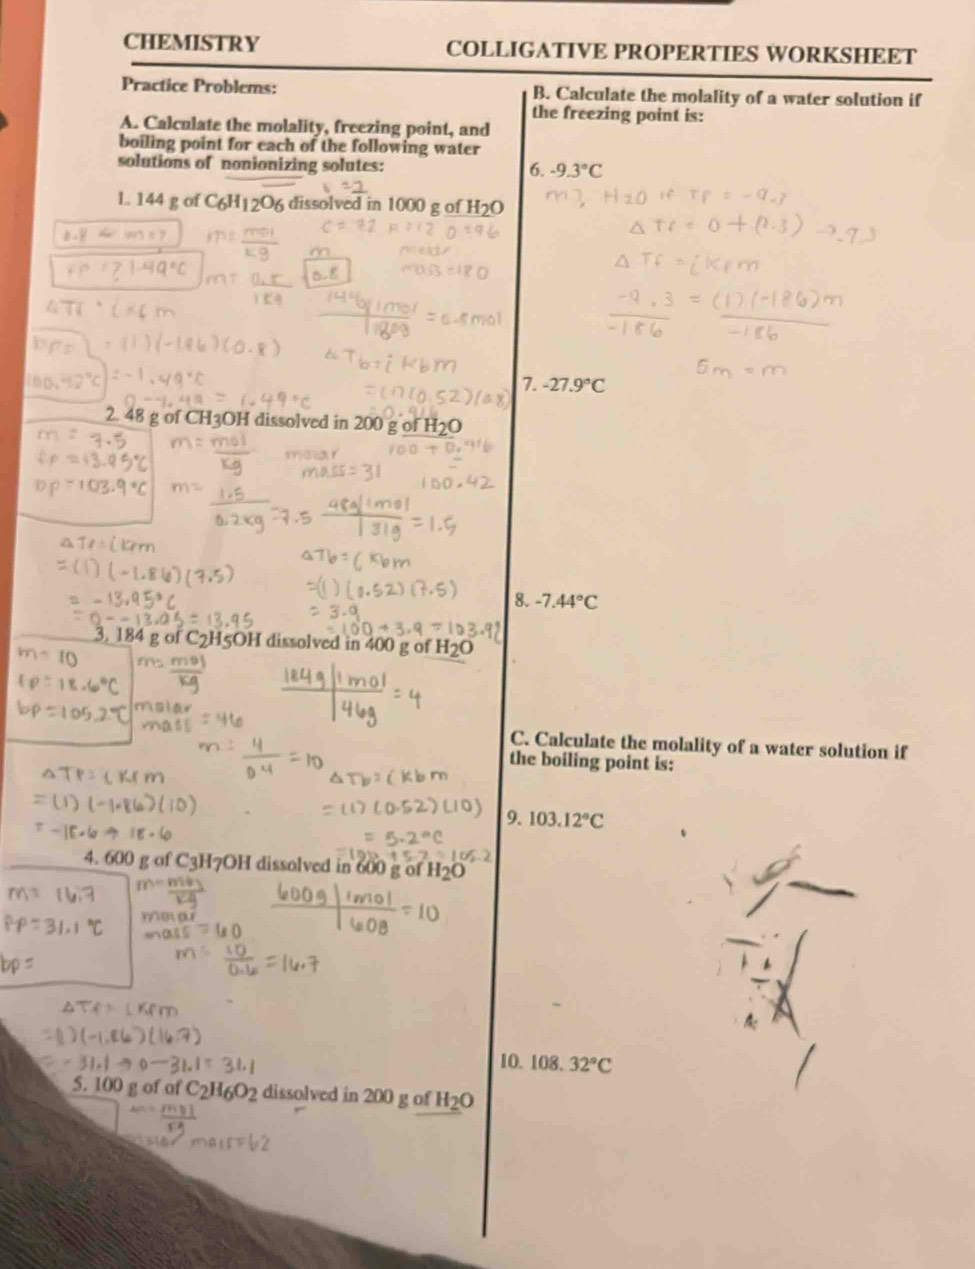 CHEMISTRY
COLLIGATIVE PROPERTIES WORKSHEET
Practice Problems:
A. Calculate the molality, freezing point, and
boiling point for each of the following water
solutions of nonionizing solutes:
1. 144 g of C6H12O6 dissolved in 1000 g of H2O
m = mol
kg
mass = 180
144g | 1mol
| 180g = 0.8 mol
= (1)(-1.86)(0.8)
ΔTb = i kbm
= -1.49°C
= (1)(0.52)(0.8)
0--1.49 = 1.49°C
2. 48 g of CH3OH dissolved in 200 g of H2O
m = 7.5
fp = 13.95°C
bp = 103.9°C
m = mol
kg
molar
mass = 31
100 + 0.416
100.42
m = 1.5
0.2kg = 7.5
48g | 1mol
| 31g = 1.5
ΔTf = i kfm
= (1) (-1.86) (7.5)
= -13.95°C
= 0--13.95 = 13.95
ΔTb = i kbm
= (1) (0.52) (7.5)
= 3.9
= 100 + 3.9 = 103.9
3. 184 g of C2H5OH dissolved in 400 g of H2O
m = 10
fp = 18.6°C
bp = 105.2°C
m = mol
kg
molar
mass = 46
184g | 1mol
| 46g = 4
m = 4
0.4 = 10
ΔTf = i kfm
= (1) (-1.86) (10)
= -18.6 → 18.6
ΔTb = i kbm
= (1) (0.52) (10)
= 5.2°C
= 100 + 5.2 = 105.2
4. 600 g of C3H7OH dissolved in 600 g of H2O
m = 16.7
fp = 31.1°C
bp =
m = mol
kg
molar
mass = 60
600g | 1mol
| 60g = 10
m = 10
0.6 = 16.7
ΔTf = i kfm
= (1)(-1.86)(16.7)
= -31.1 → 0--31.1 = 31.1
5. 100 g of of C2H6O2 dissolved in 200 g of H2O
m = mol
kg
molar mass = 62
B. Calculate the molality of a water solution if
the freezing point is:
6. -9.3°C
m?, H2O if TF = -9.3
ΔTf = i kfm
-9.3 = (1)(-186)m
-186 -186
5m = m
7. -27.9°C
8. -7.44°C
C. Calculate the molality of a water solution if
the boiling point is:
9. 103.12°C
10. 108. 32°C